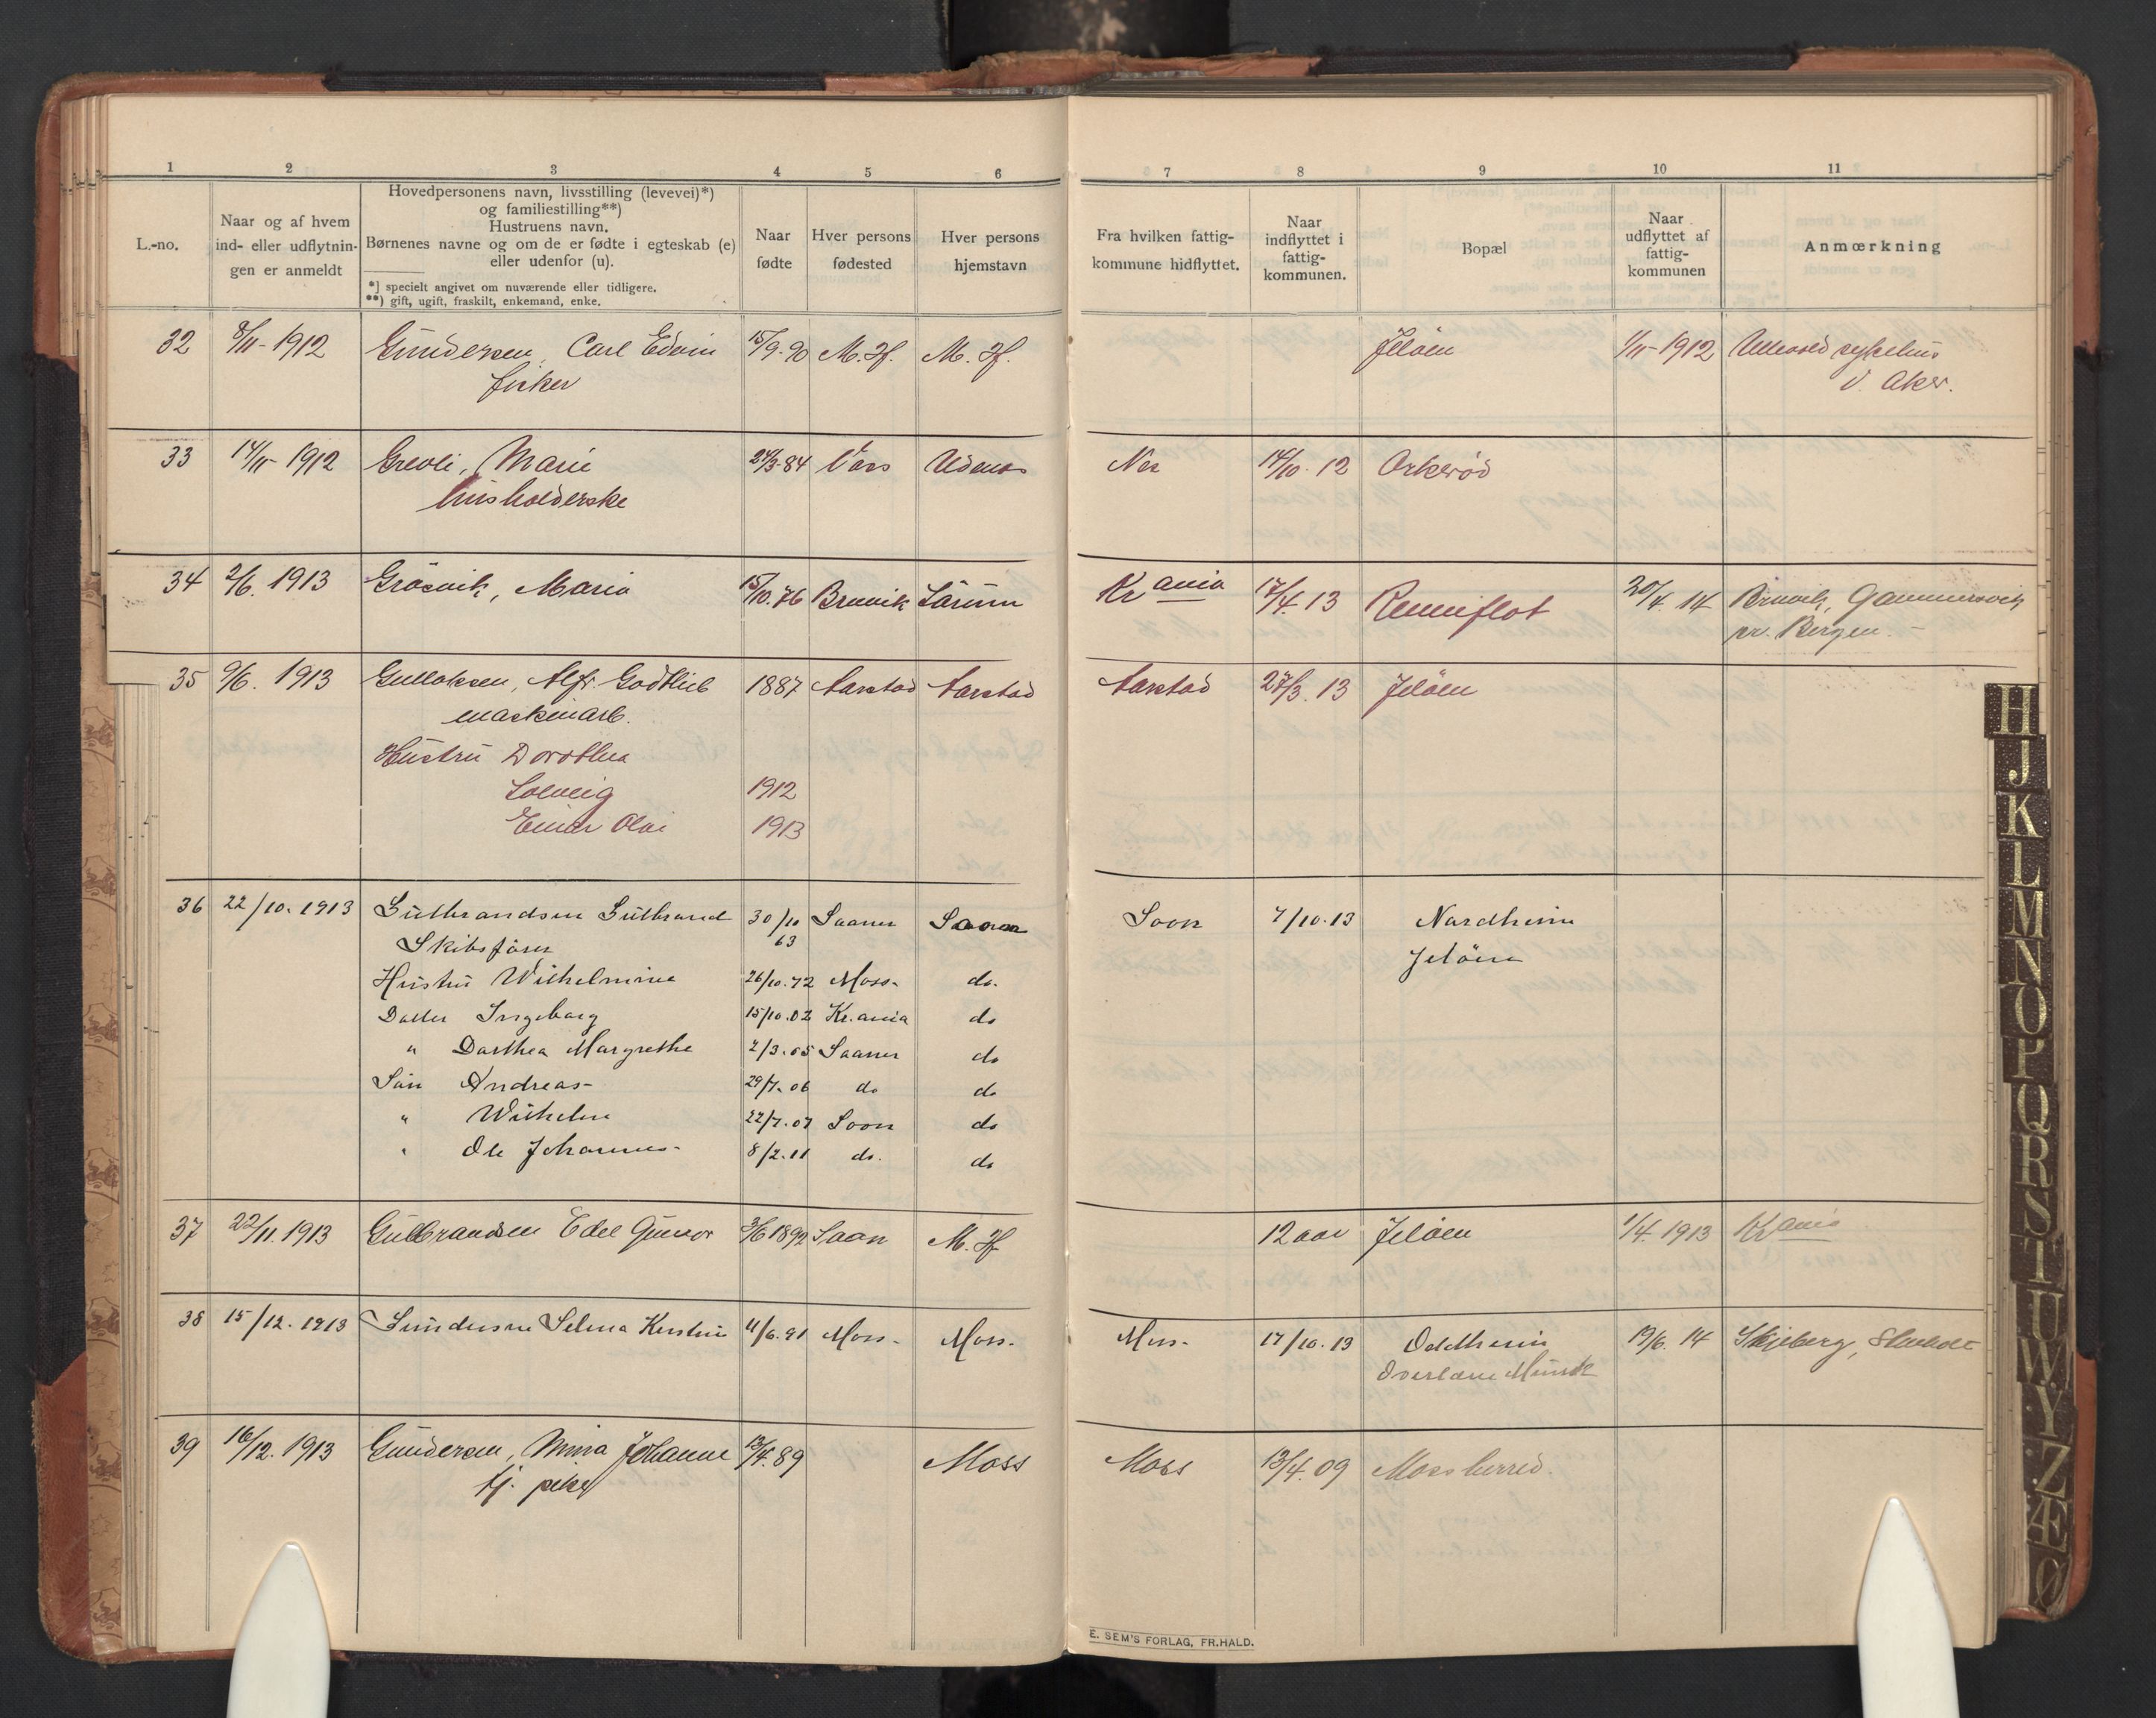 1 2 3 4 5 6 7 8 9 10 11
L.-no.
Naar og af hvem
ind- eller udflytnin-
gen er anmeldt
Hovedpersonens navn, livsstilling (levevei)*)
og familiestilling**)
Hustruens navn.
Børnenes navne og om de er fødte i egteskab (e)
eller udenfor (u).
*) specielt angivet om nuværende eller tidligere.
**) gift, ugift, fraskilt, enkemand, enke.
Naar
fødte
Hver persons
fødested
Hver persons
hjemstavn
Fra hvilken fattig-
kommune hidflyttet.
Naar
indflyttet i
fattig-
kommunen.
Bopæl
Naar
udflyttet af
fattig-
kommunen
Anmærkning
32 8/11-1912 Gundersen, Carl Edvin 15/9-90 M. H. M. H. Jeløen 1/11-1912 Ullevold sykehus
fisker V. Aker.
33 14/11-1912 Grevli, Marie 24/3-84 Udenes Nes 14/10. 12 Orkerød
husholderske
34 2/6. 1913 Gråsvik, Maria 15/10.76 Bruvik Kr ania 17/4.13 Renneflot 20/4. 14 Bruvik, Gammersvik
pr. Bergen.
35 9/6. 1913 Gullaksen, Alfr. Godtlieb 1887 Aarstad Aarstad Aarstad 27/3. 13 Jeløen
maskinarb.
Hustru Dorothea
Solveig 1912
Einar Olai 1913
36 22/10. 1913 Gulbrandsen Gulbrand 30/10 63 Saaner Soon 7/10.13 Nordheim
Skibsfører Jeløen
Hustru Wilhelmine 26/10.72 Moss- do.
Datter Ingeborg 15/10.02 Kr.ania do
" Dorthea Margrethe 2/3.05 Saaner do
Søn Andreas- 29/7.06 do do
" Wilhelm 22/7.07 Soon do
" Ole Johannes- 8/2.11 do. do
37 22/11 1913 Gulbrandsen Edel Gunvor 3/6 1892 Saan M. H 12 aar Jeløen 1/4. 1913 Kr ania
38 15/12. 1913 Gundersen Selma Kirstine 4/6.91 Moss- Moss- Moss- 17/10.13 Oddheim 19/6. 14 Skjeberg,
Overlærer Munch
39 16/12. 1913 Gundersen, Mina Johanne 13/4.89 Moss Moss 13/4.09 Moss herred.
tj. pike
E. SEM'S FORLAG, FR.HALD.
H
J
K
L
M
N
O
P
Q
R
S
T
U
W
Y
Z
Æ
Ø